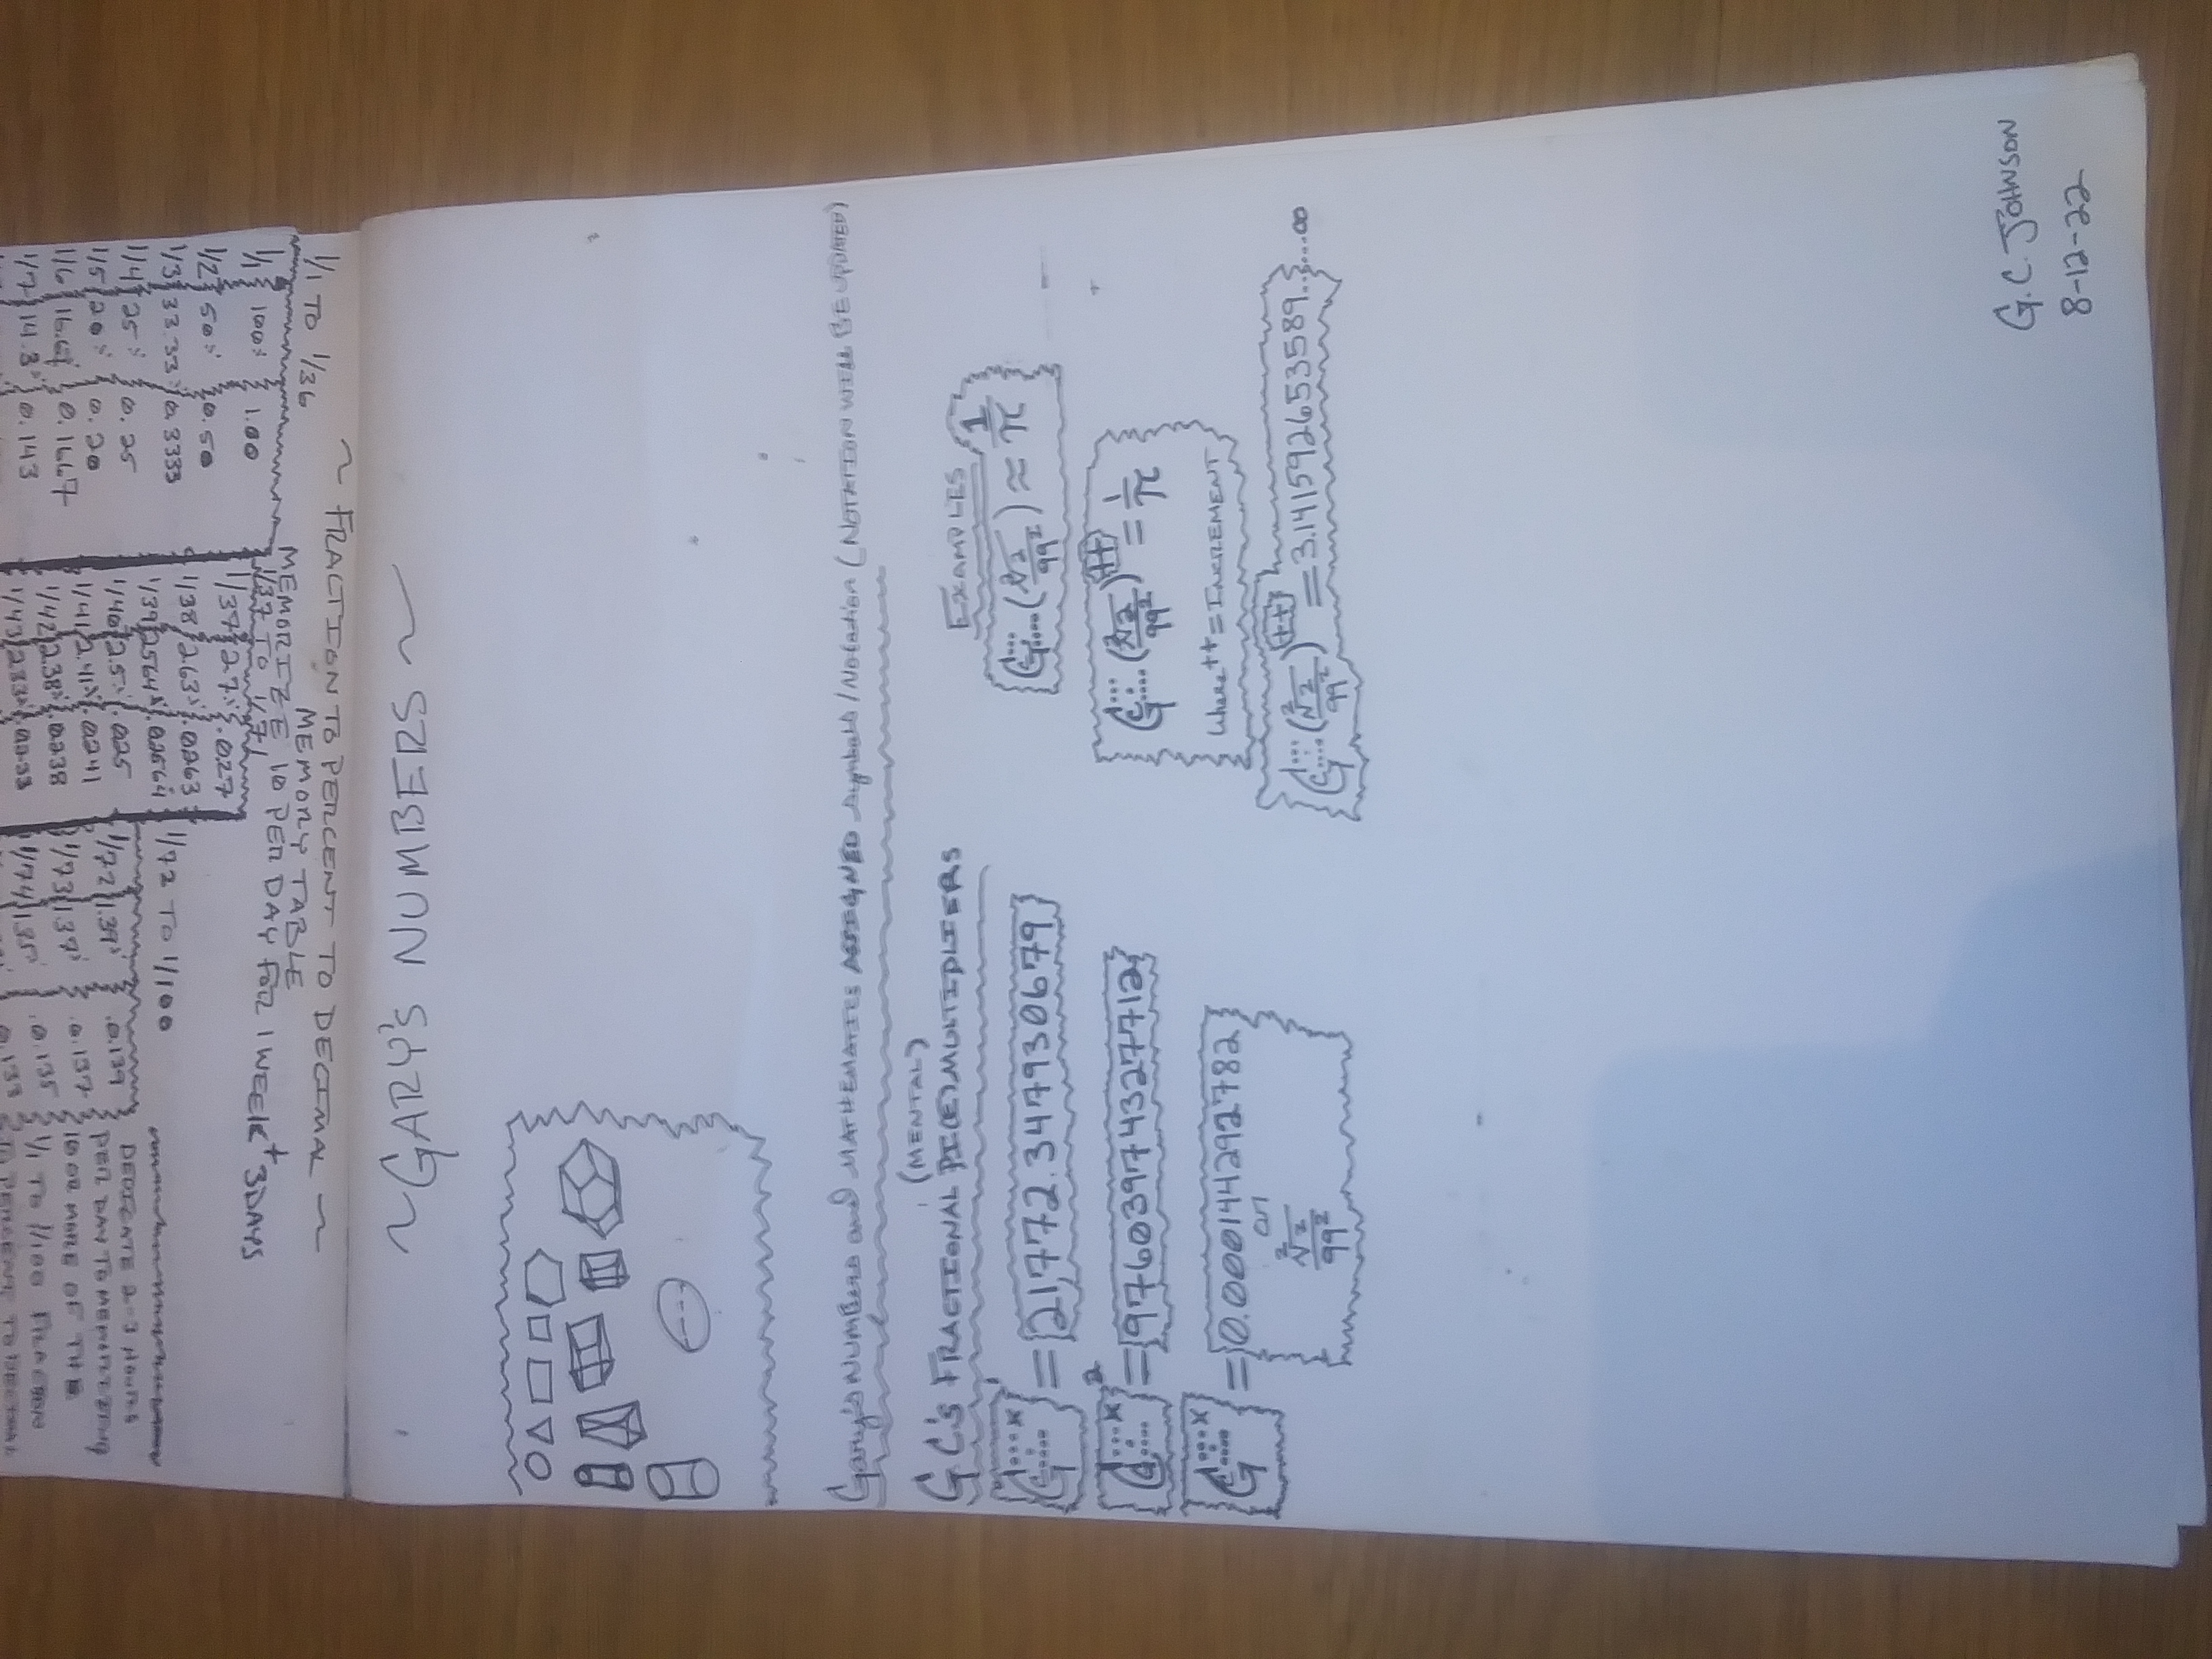 ~ FRACTION TO PERCENT TO DECIMAL ~
MEMORY TABLE
MEMORIZE 10 PER DAY FOR 1 WEEK + 3 DAYS
1/1 TO 1/36
1/1 100% 1.00
1/2 50% 0.50
1/3 33.33% 0.3333
1/4 25% 0.25
1/5 20% 0.20
1/6 16.67% 0.1667
1/7 14.3% 0.143
1/37 TO 1/71
1/37 2.7% .027
1/38 2.63% .0263
1/39 2.564% .02564
1/40 2.5% .025
1/41 2.41% .0241
1/42 2.38% .0238
1/43 2.33% .0233
1/72 TO 1/100
1/72 1.39% .0.139
1/73 1.37% .0.137
1/74 1.35% .0.135
0.133
DEDICATE 2-3 HOURS
PER DAY TO MEMORIZING
10 OR MORE OF THE
1/1 TO 1/100 FRACTION
TO PERCENT TO DECIMAL
~GARY'S NUMBERS~
Gary's Numbers and MATHEMATICS ASSIGNED Symbols/Notation (NOTATION WILL BE UPDATED)
(MENTAL)
GC'S FRACTIONAL PI(E) MULTIPLIERS
= 21,772.347930679
2 = 976039743277712
= 0.000144292782
or
²√2
99²
EXAMPLES
(²√2/99²) ≈ 1/π
(²√2/99²)++ = 1/π
where ++ = INCREMENT
(²√2/99²)++ = 3.141592653589......∞
G.C. JOHNSON
8-12-22